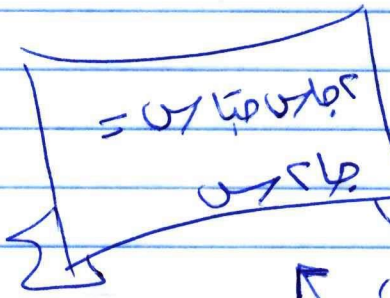 ٢ جاس جتاس =
جا ٢ س